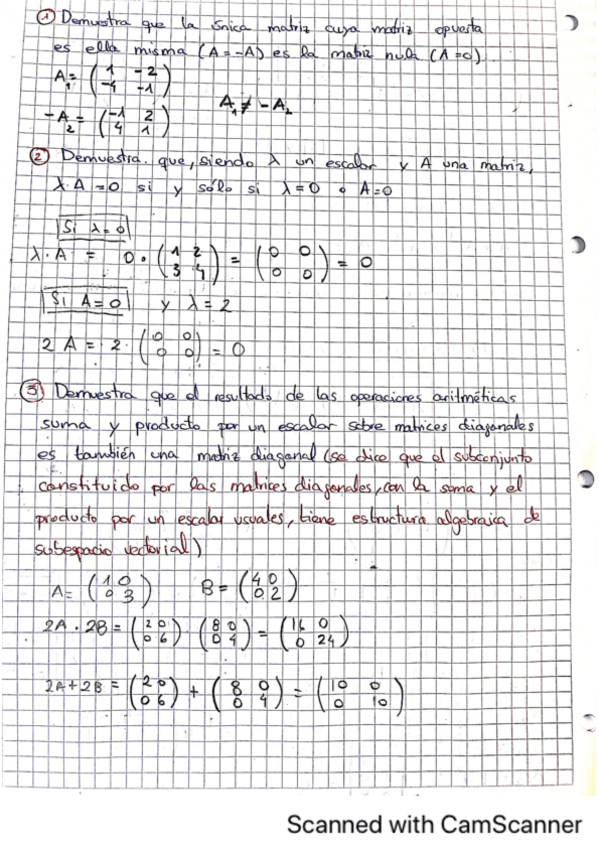 ① Demuestra que la única matriz cuya matriz opuesta
es ella misma (A=-A) es la matriz nula (A=0).
A₁= ( 1 -2 )
( -4 -1 )
-A₂= ( -1 2 )
( 4 1 )
A₁ ≠ -A₂
② Demuestra. que, siendo λ un escalar y A una matriz,
λ·A=0 si y sólo si λ=0 o A=0
Si λ=0
λ·A = 0· ( 1 2 ) = ( 0 0 ) = 0
( 3 4 ) ( 0 0 )
Si A=0 y λ=2
2 A = 2· ( 0 0 ) = 0
( 0 0 )
③ Demuestra que el resultado de las operaciones aritméticas
suma y producto por un escalar sobre matrices diagonales
es también una matriz diagonal (se dice que el subconjunto
constituido por las matrices diagonales, con la suma y el
producto por un escalar usuales, tiene estructura algebraica de
subespacio vectorial)
A= ( 1 0 ) B= ( 4 0 )
( 0 3 ) ( 0 2 )
2A·2B= ( 2 0 ) · ( 8 0 ) = ( 16 0 )
( 0 6 ) ( 0 4 ) ( 0 24 )
2A+2B= ( 2 0 ) + ( 8 0 ) = ( 10 0 )
( 0 6 ) ( 0 4 ) ( 0 10 )
Scanned with CamScanner